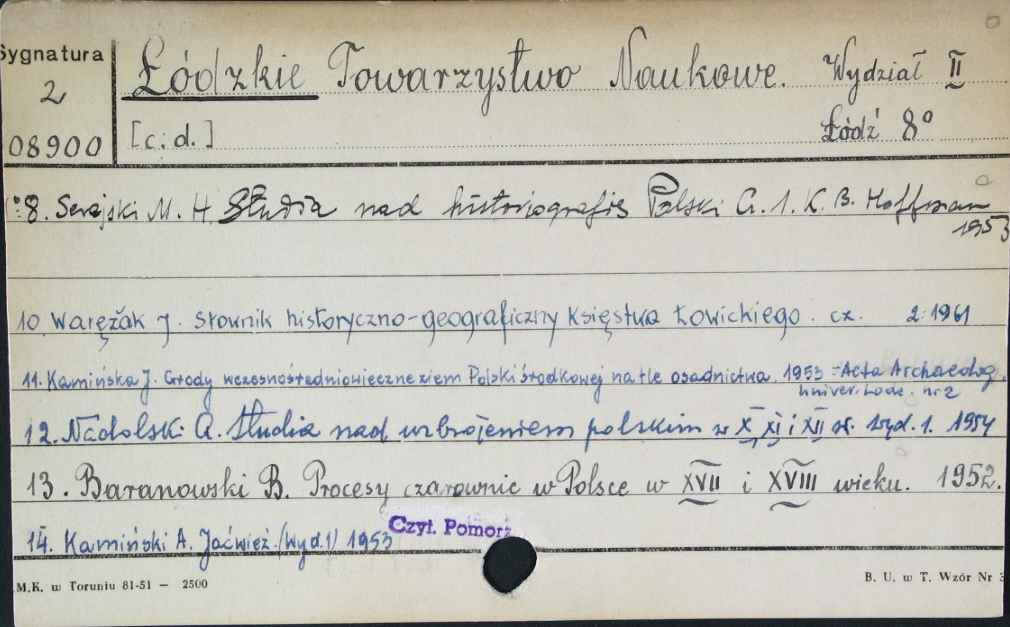 Sygnatura
2
08900
Łódzkie Towarzystwo Naukowe. Wydział II
[c.d.] Łódź 8°
8. Serejski M. H. Studia nad historiografią Polski G. 1. K. B. Hoffman
1953
10. Waręžak J. Słownik historyczno-geograficzny Księstwa Łowickiego. cz. 2. 1961
11. Kamińska J. Grody wczesnośredniowieczne ziem Polski środkowej na tle osadnictwa. 1953 - Acta Archaeolog.
Univer. Lodz. nr 2
12. Nadolski A. Studia nad uzbrojeniem polskim w X, XI i XII w. Wyd. 1. 1954
13. Baranowski B. Procesy czarownic w Polsce w XVII i XVIII wieku. 1952.
14. Kamiński A. Jaćwież. (Wyd. 1) 1953
Czyt. Pomorz
M.K. w Toruniu 81-51 — 2500
B. U. w T. Wzór Nr 3